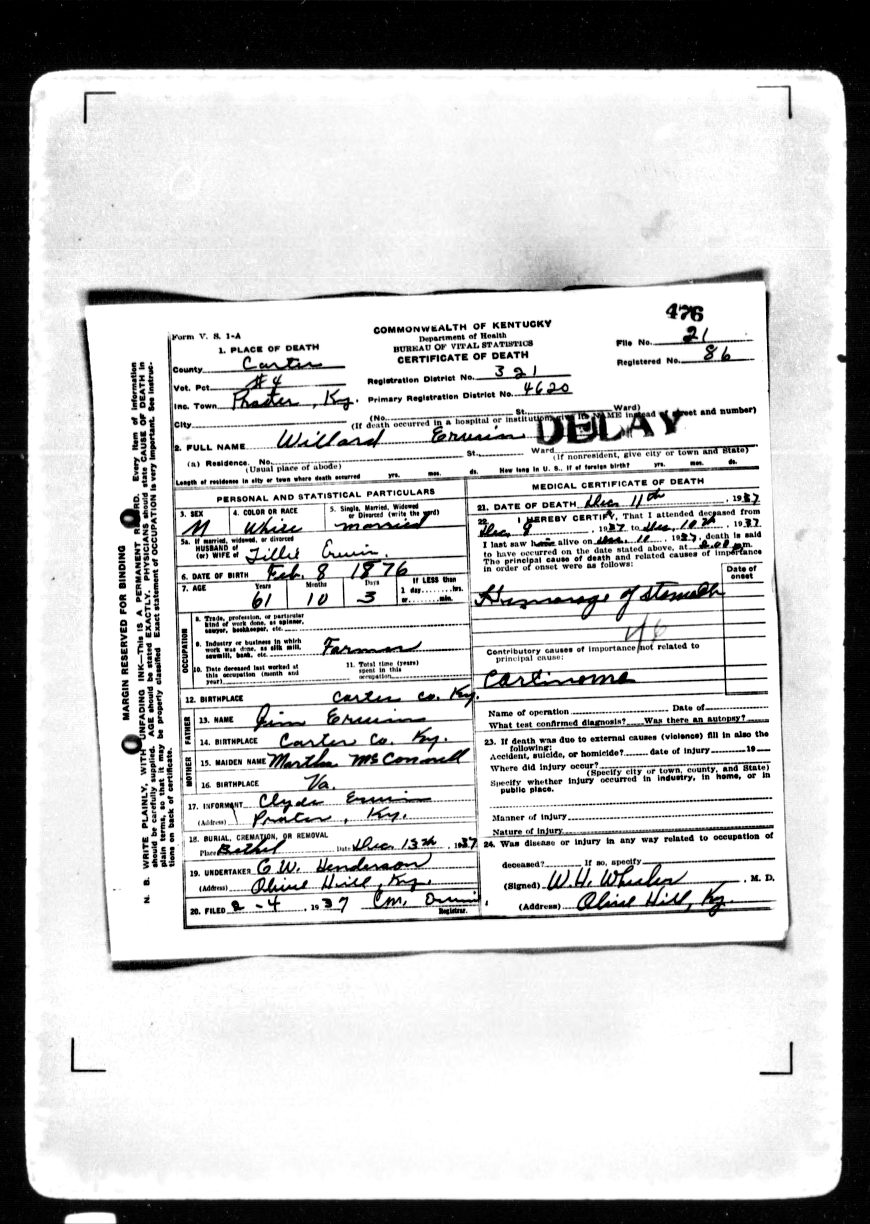 476
Form V. S. 1-A
COMMONWEALTH OF KENTUCKY
Department of Health
BUREAU OF VITAL STATISTICS
CERTIFICATE OF DEATH
File No. 21
Registered No. 86
1. PLACE OF DEATH
County Carter
Vot. Pct. #4
Inc. Town Prater, Ky.
City
Registration District No. 321
Primary Registration District No. 4620
(No. St. Ward)
(If death occurred in a hospital or institution, give its NAME instead of street and number)
DELAY
2. FULL NAME Willard Erwin
(a) Residence. No. St., Ward
(Usual place of abode) (If nonresident, give city or town and State)
Length of residence in city or town where death occurred yrs. mos. ds. How long in U. S., if of foreign birth? yrs. mos. ds.
PERSONAL AND STATISTICAL PARTICULARS
3. SEX M
4. COLOR OR RACE White
5. Single, Married, Widowed or Divorced (write the word) married
5a. If married, widowed, or divorced
HUSBAND of
(or) WIFE of Tillie Erwin
6. DATE OF BIRTH Feb. 8 1876
7. AGE Years 61 Months 10 Days 3 If LESS than 1 day hrs. or min.
OCCUPATION
8. Trade, profession, or particular
kind of work done, as spinner,
sawyer, bookkeeper, etc.
9. Industry or business in which
work was done, as silk mill,
sawmill, bank, etc. Farmer
10. Date deceased last worked at
this occupation (month and
year)
11. Total time (years)
spent in this
occupation
12. BIRTHPLACE Carter Co. Ky.
FATHER
13. NAME Jim Erwin
14. BIRTHPLACE Carter Co. Ky.
MOTHER
15. MAIDEN NAME Martha McConnell
16. BIRTHPLACE Va.
17. INFORMANT Clyde Erwin
(Address) Prater, Ky.
18. BURIAL, CREMATION, OR REMOVAL
Place Bethel Date Dec. 13th, 1937
19. UNDERTAKER C. W. Henderson
(Address) Olive Hill, Ky.
20. FILED 2-4, 1937 Registrar.
MEDICAL CERTIFICATE OF DEATH
21. DATE OF DEATH Dec. 11th, 1937
22. I HEREBY CERTIFY, That I attended deceased from
Dec. 9, 1937 to Dec. 10th, 1937
I last saw him alive on Dec. 10, 1937, death is said
to have occurred on the date stated above, at m.
The principal cause of death and related causes of importance
in order of onset were as follows:
Date of onset
Hemorrage of Stomach
46
Contributory causes of importance not related to
principal cause:
Carcinoma
Name of operation Date of
What test confirmed diagnosis? Was there an autopsy?
23. If death was due to external causes (violence) fill in also the
following:
Accident, suicide, or homicide? date of injury 19
Where did injury occur?
(Specify city or town, county, and State)
Specify whether injury occurred in industry, in home, or in
public place.
Manner of injury
Nature of injury
24. Was disease or injury in any way related to occupation of
deceased? If no, specify
(Signed) W. H. Wheeler, M. D.
(Address) Olive Hill, Ky.
MARGIN RESERVED FOR BINDING
N. B. WRITE PLAINLY, WITH UNFADING INK—This IS A PERMANENT RECORD. Every item of information
should be carefully supplied. AGE should be stated EXACTLY. PHYSICIANS should state CAUSE OF DEATH in
plain terms, so that it may be properly classified. Exact statement of OCCUPATION is very important. See instruc-
tions on back of certificate.